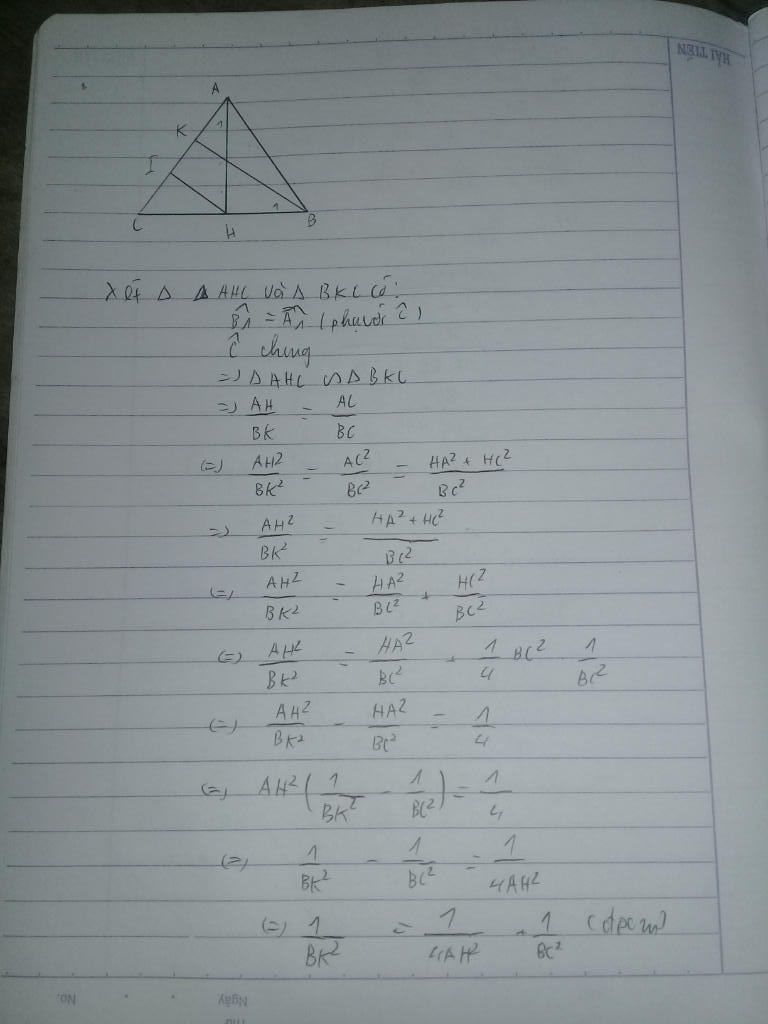 HẢI TIẾN
A
1
K
I
C
H
1
B
Xét Δ Δ AHC và Δ BKC có:
B̂1 = Â1 (phụ với Ĉ)
Ĉ chung
=> Δ AHC ∽ Δ BKC
=> AH/BK = AC/BC
(=) AH²/BK² = AC²/BC² = (HA² + HC²)/BC²
=> AH²/BK² = (HA² + HC²)/BC²
(=) AH²/BK² = HA²/BC² + HC²/BC²
(=) AH²/BK² = HA²/BC² + 1/4 BC² · 1/BC²
(=) AH²/BK² - HA²/BC² = 1/4
(=) AH² (1/BK² - 1/BC²) = 1/4
(=) 1/BK² - 1/BC² = 1/4AH²
(=) 1/BK² = 1/4AH² + 1/BC² (đpcm)
No.
Ngày
Thứ